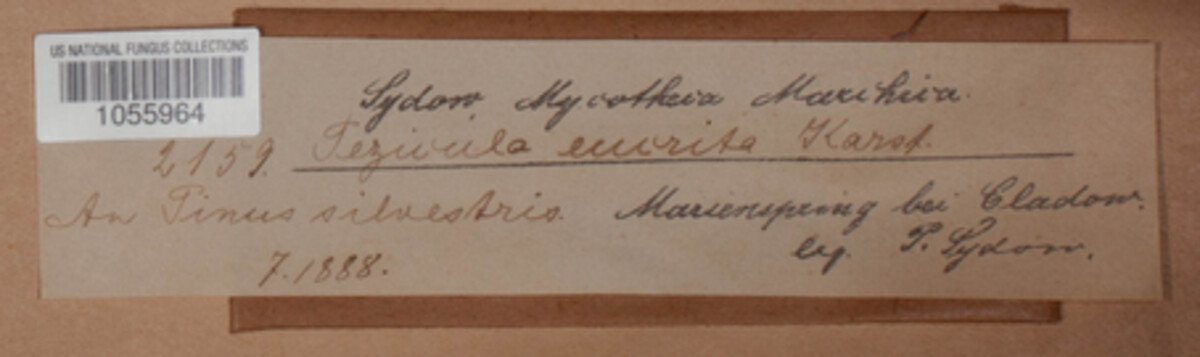 US NATIONAL FUNGUS COLLECTIONS
1055964
Sydow, Mycotheca Marchica.
2159. Pezicula eucrita Karst.
An Pinus silvestris. Marienspring bei Cladow.
7.1888. leg. P. Sydow.